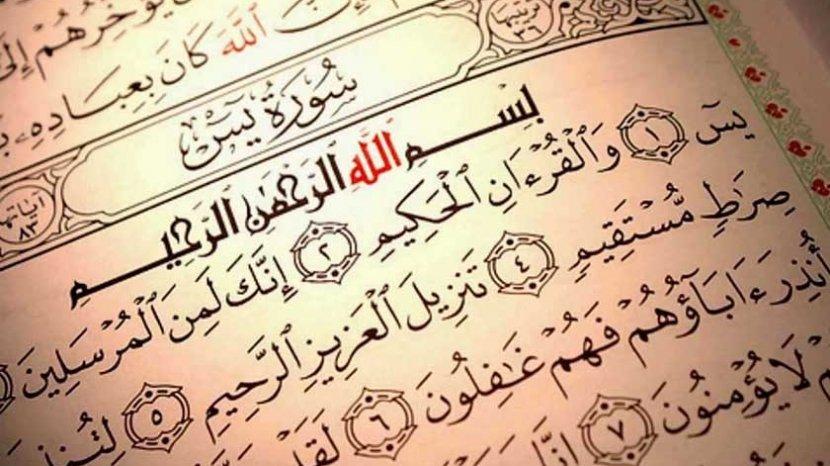 يُؤَخِّرُهُمْ إِلَىٰ
إِنَّ ٱللَّهَ كَانَ بِعِبَادِهِۦ
تَرْتِيبُهَا ٣٦
سُورَةُ يسٓ
آيَاتُهَا ٨٣
بِسْمِ ٱللَّهِ ٱلرَّحْمَٰنِ ٱلرَّحِيمِ
يسٓ ١ وَٱلْقُرْءَانِ ٱلْحَكِيمِ ٢ إِنَّكَ لَمِنَ ٱلْمُرْسَلِينَ
صِرَٰطٍ مُّسْتَقِيمٍ ٤ تَنزِيلَ ٱلْعَزِيزِ ٱلرَّحِيمِ ٥ لِتُنذِرَ
أُنذِرَ ءَابَآؤُهُمْ فَهُمْ غَٰفِلُونَ ٦ لَقَدْ
لَا يُؤْمِنُونَ ٧ إِنَّا